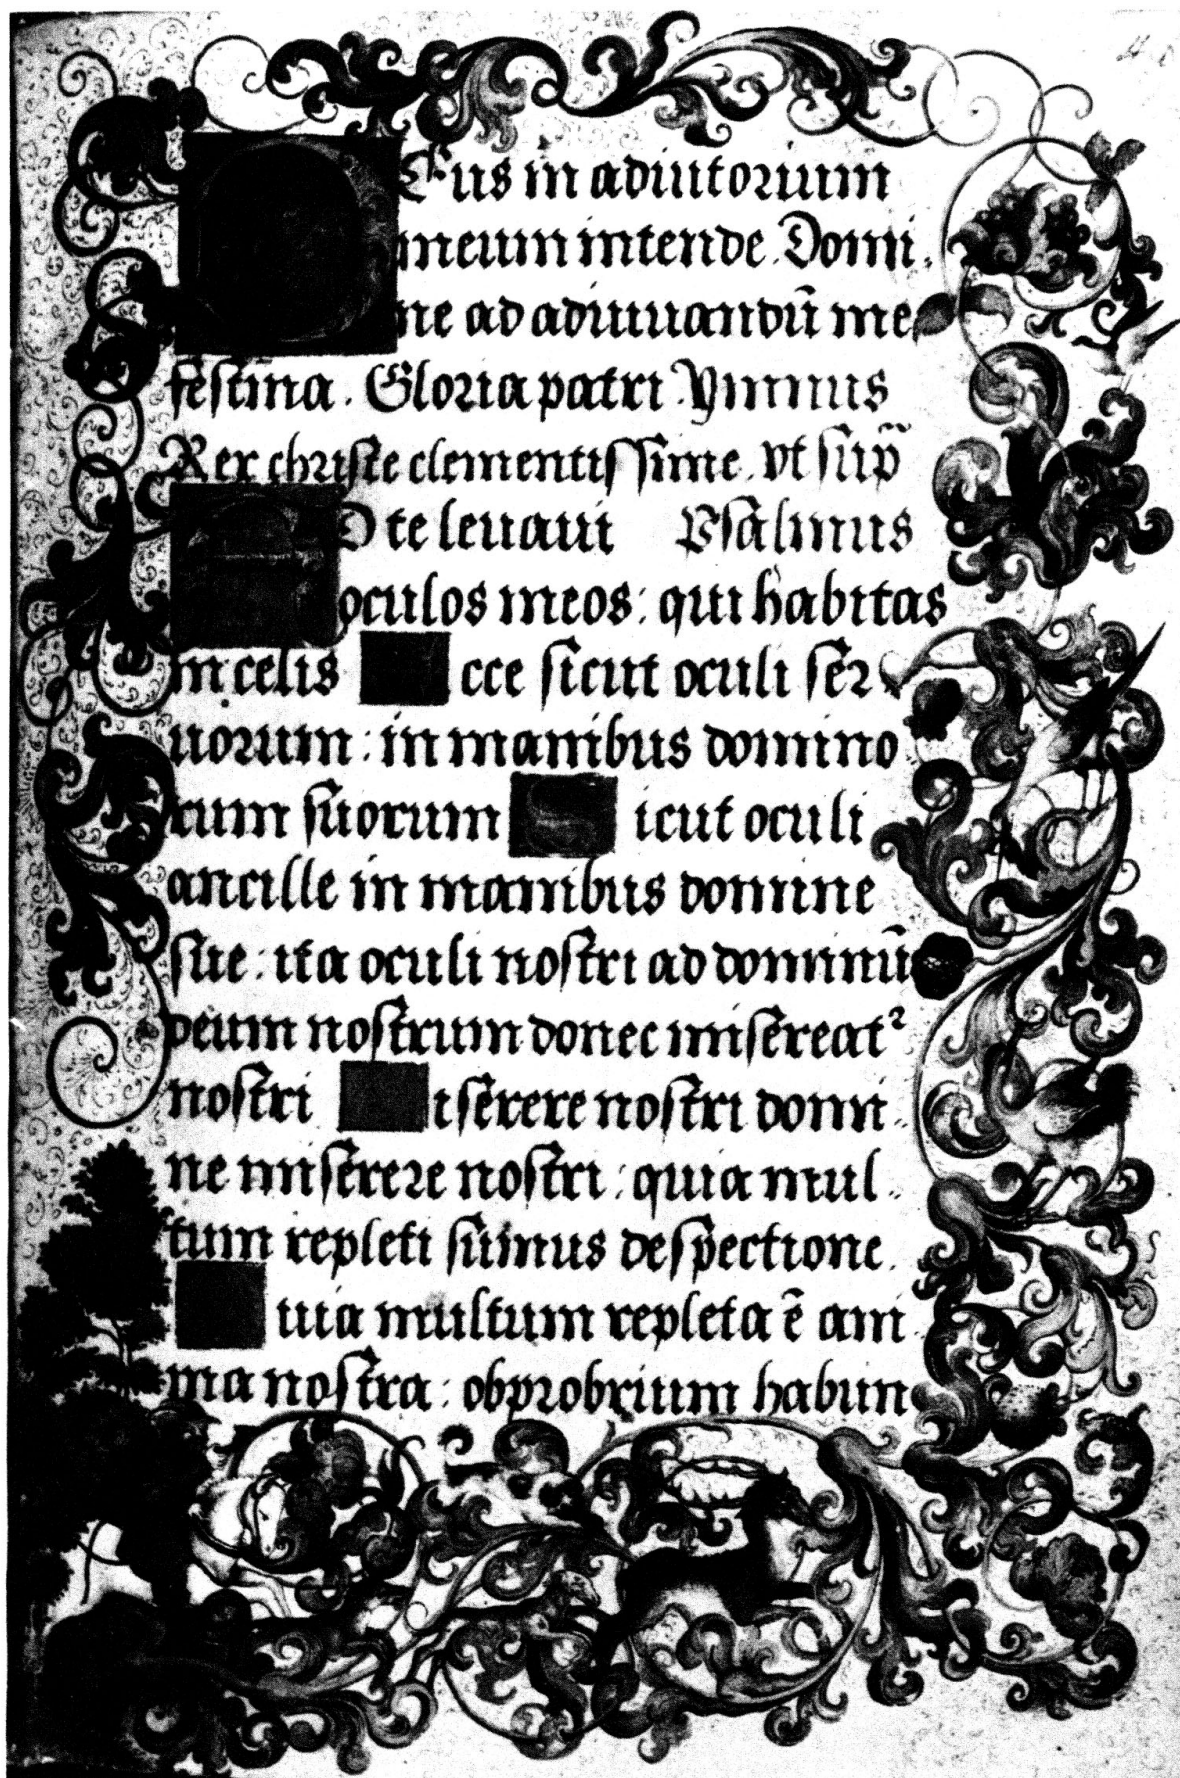 DEus in adiutorium
meum intende. Domi.
ne ad adiuuandũ me
festina. Gloria patri. Ymnus
Rex christe clementissime. vt sup̃
AD te leuaui Psalmus
oculos meos: qui habitas
in celis Ecce sicut oculi ser
uorum: in manibus domino
rum suorum Sicut oculi
ancille in manibus domine
sue: ita oculi nostri ad dominũ
deum nostrum donec misereat²
nostri Miserere nostri domi.
ne miserere nostri: quia mul.
tum repleti sumus despectione.
Quia multum repleta ẽ ani
ma nostra: obprobrium habun